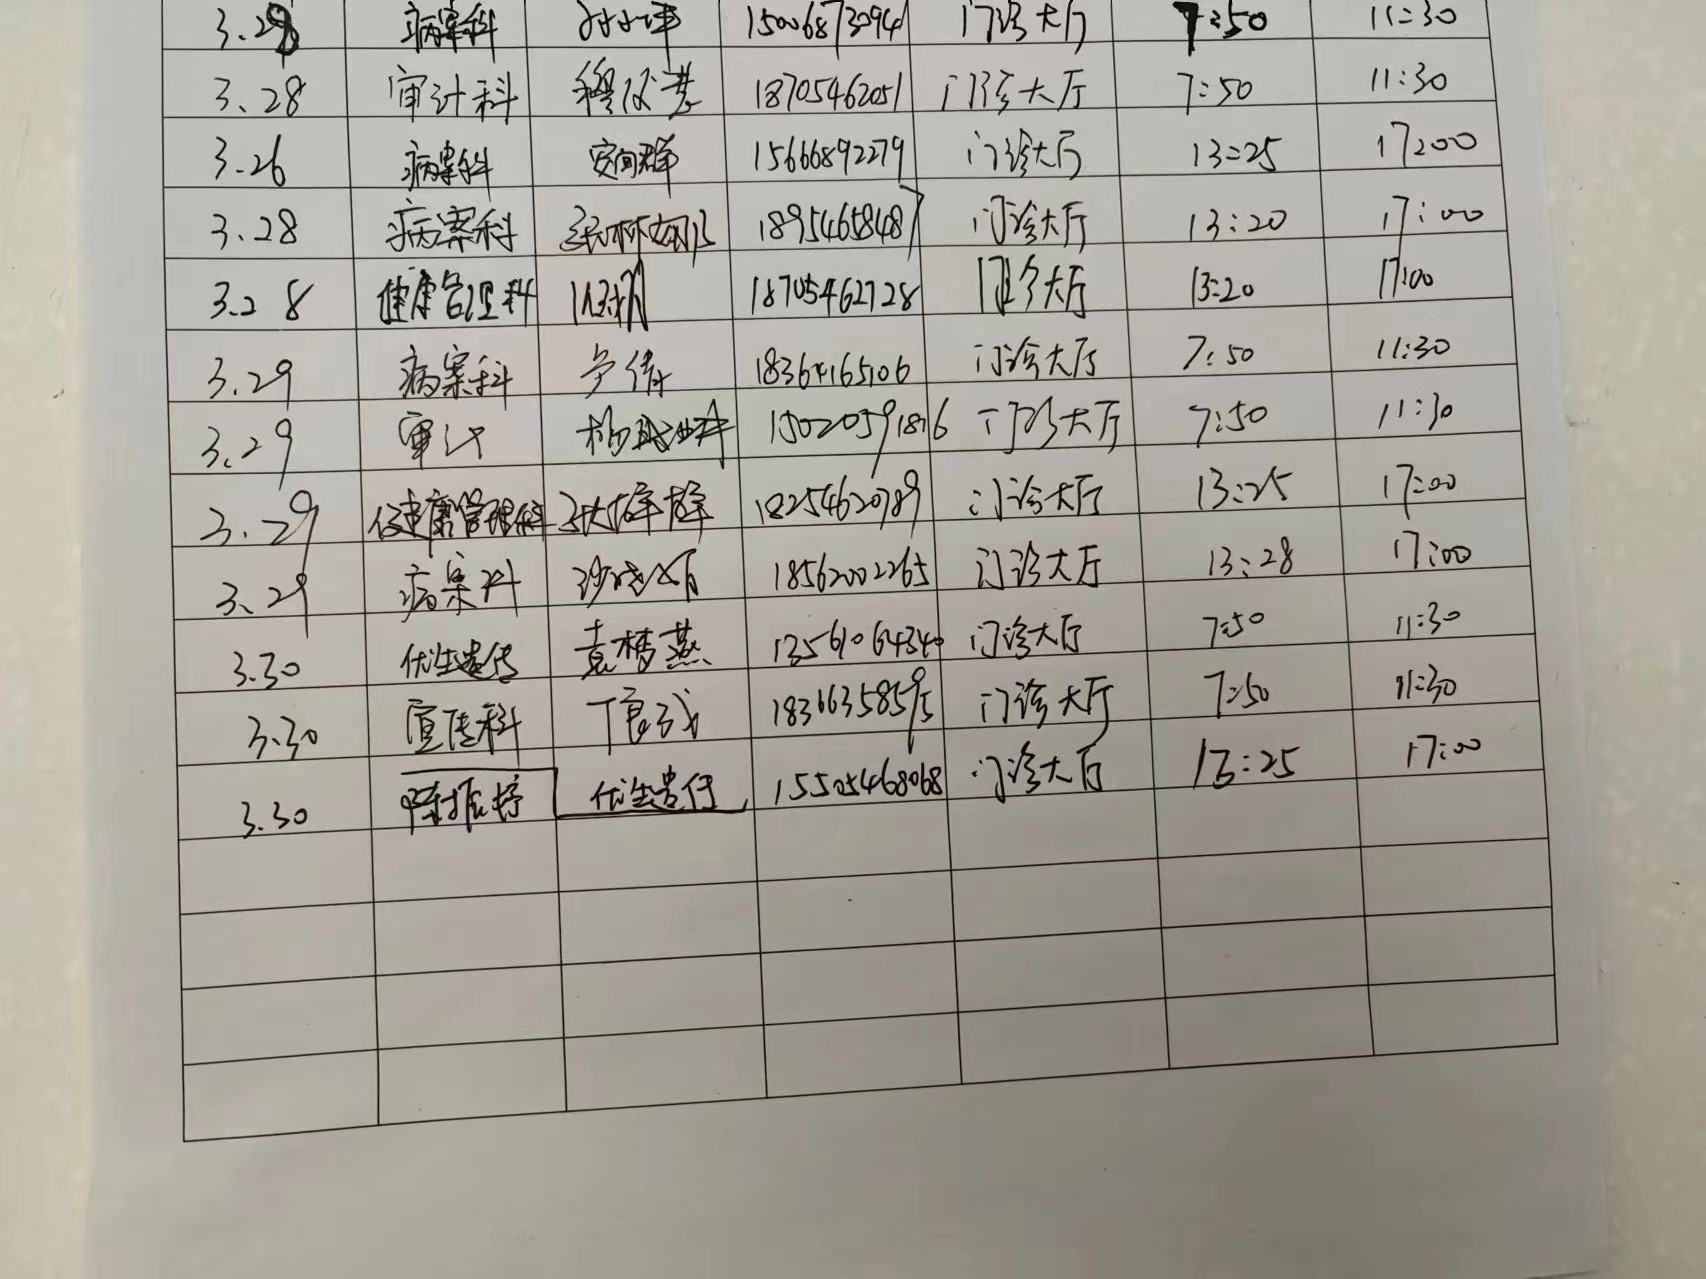 3.28 病案科 15006873094 门诊大厅 7:50 11:30
3.28 审计科 18705462051 门诊大厅 7:50 11:30
3.26 病案科 15666892279 门诊大厅 13:25 17:00
3.28 病案科 18954658487 门诊大厅 13:20 17:00
3.28 健康管理科 18705462728 门诊大厅 13:20 17:00
3.29 病案科 18364165106 门诊大厅 7:50 11:30
3.29 审计 门诊大厅 7:50 11:30
3.29 健康管理科 18254620789 门诊大厅 13:25 17:00
3.29 病案科 18562002265 门诊大厅 13:28 17:00
3.30 优生遗传 袁梦燕 13561064340 门诊大厅 7:50 11:30
3.30 宣传科 18366358595 门诊大厅 7:50 11:30
3.30 优生遗传 15505468068 门诊大厅 13:25 17:00